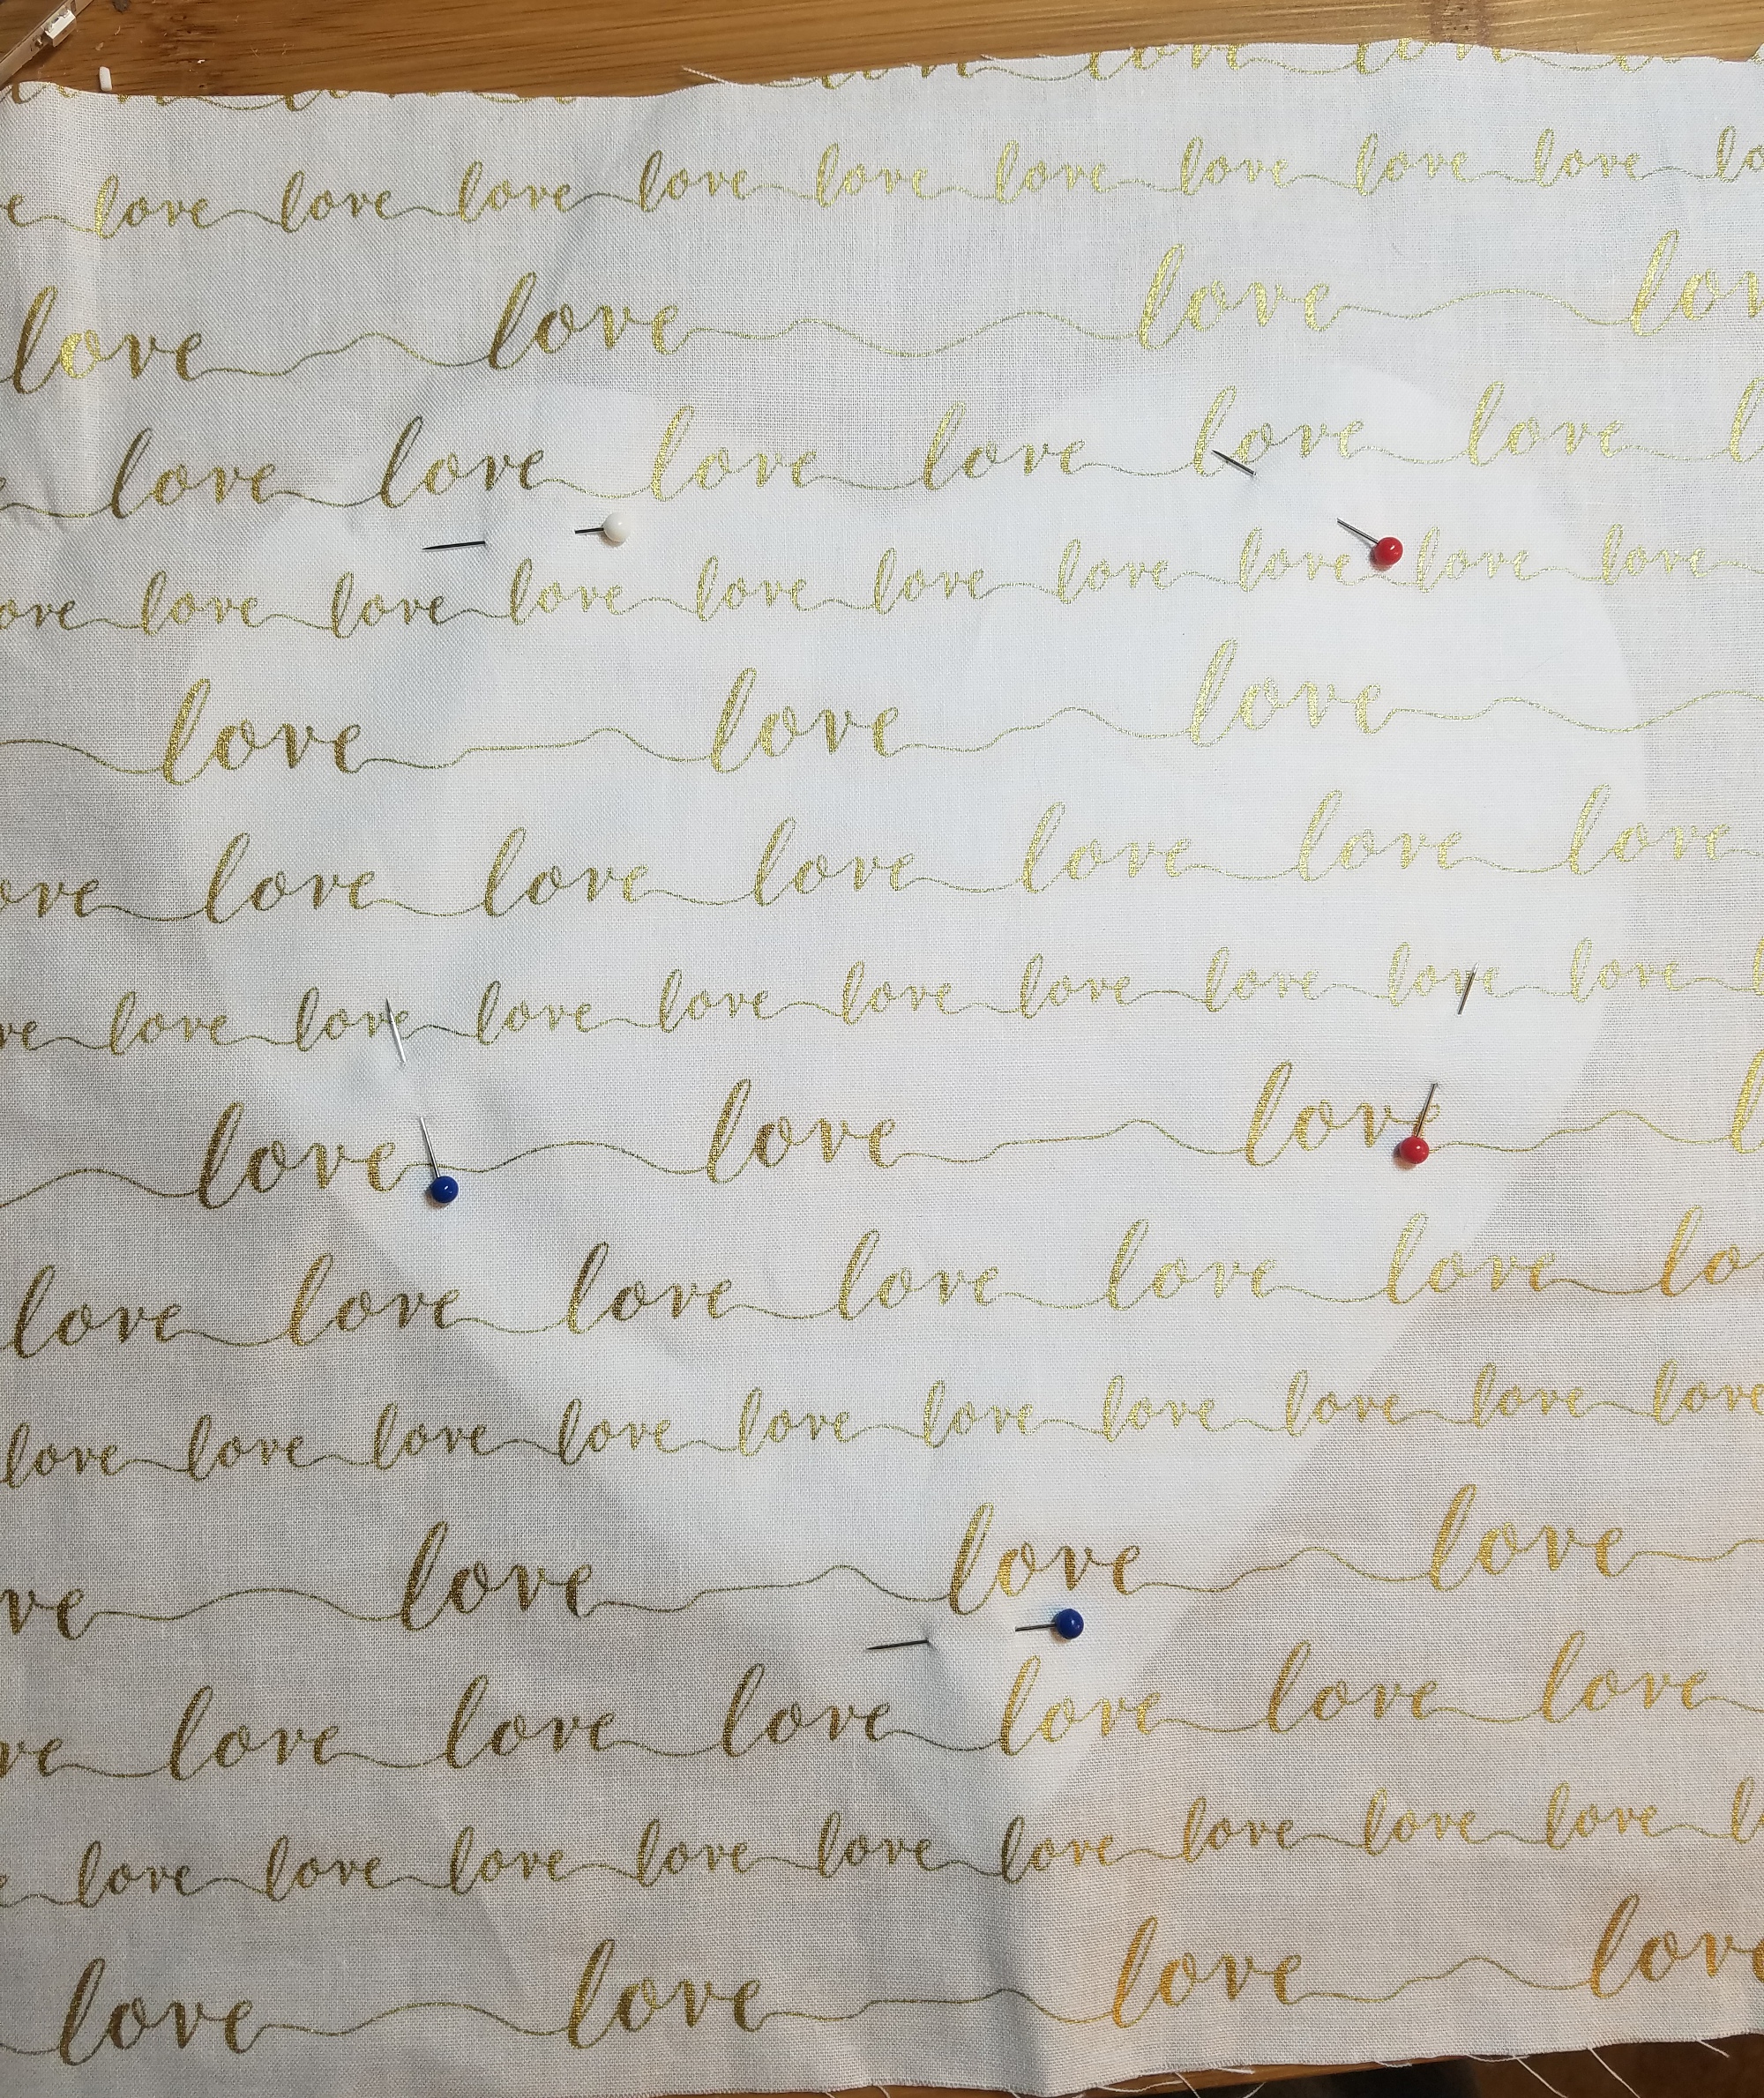 e love love love love love love love love love lo
love love love lov
love love love love love love l
ove love love love love love love love love love
love love love
ove love love love love love love
ve love love love love love love love love love l
love love love l
love love love love love love lo
love love love love love love love love love love
ve love love love
ve love love love love love love
e love love love love love love love love love l
love love love love